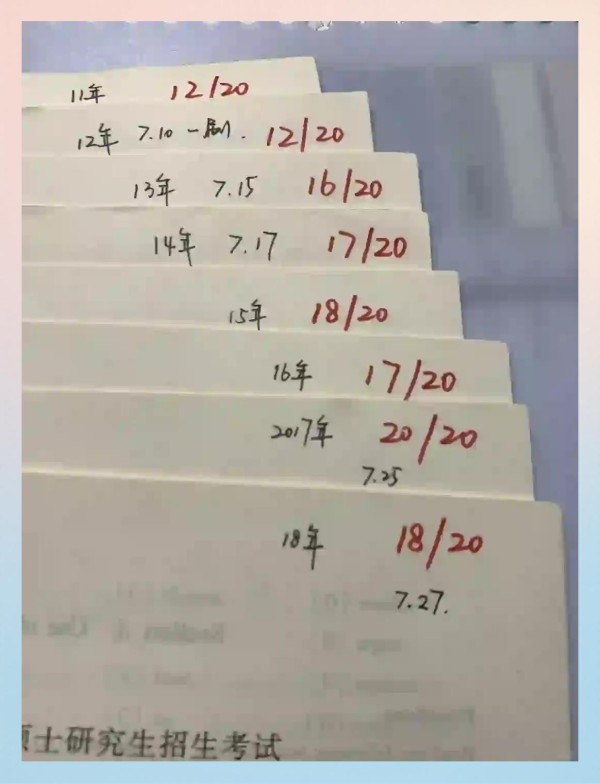 11年 12/20
12年 7.10 一刷. 12/20
13年 7.15 16/20
14年 7.17 17/20
15年 18/20
16年 17/20
2017年 20/20
7.25
18年 18/20
7.27.
士研究生招生考试